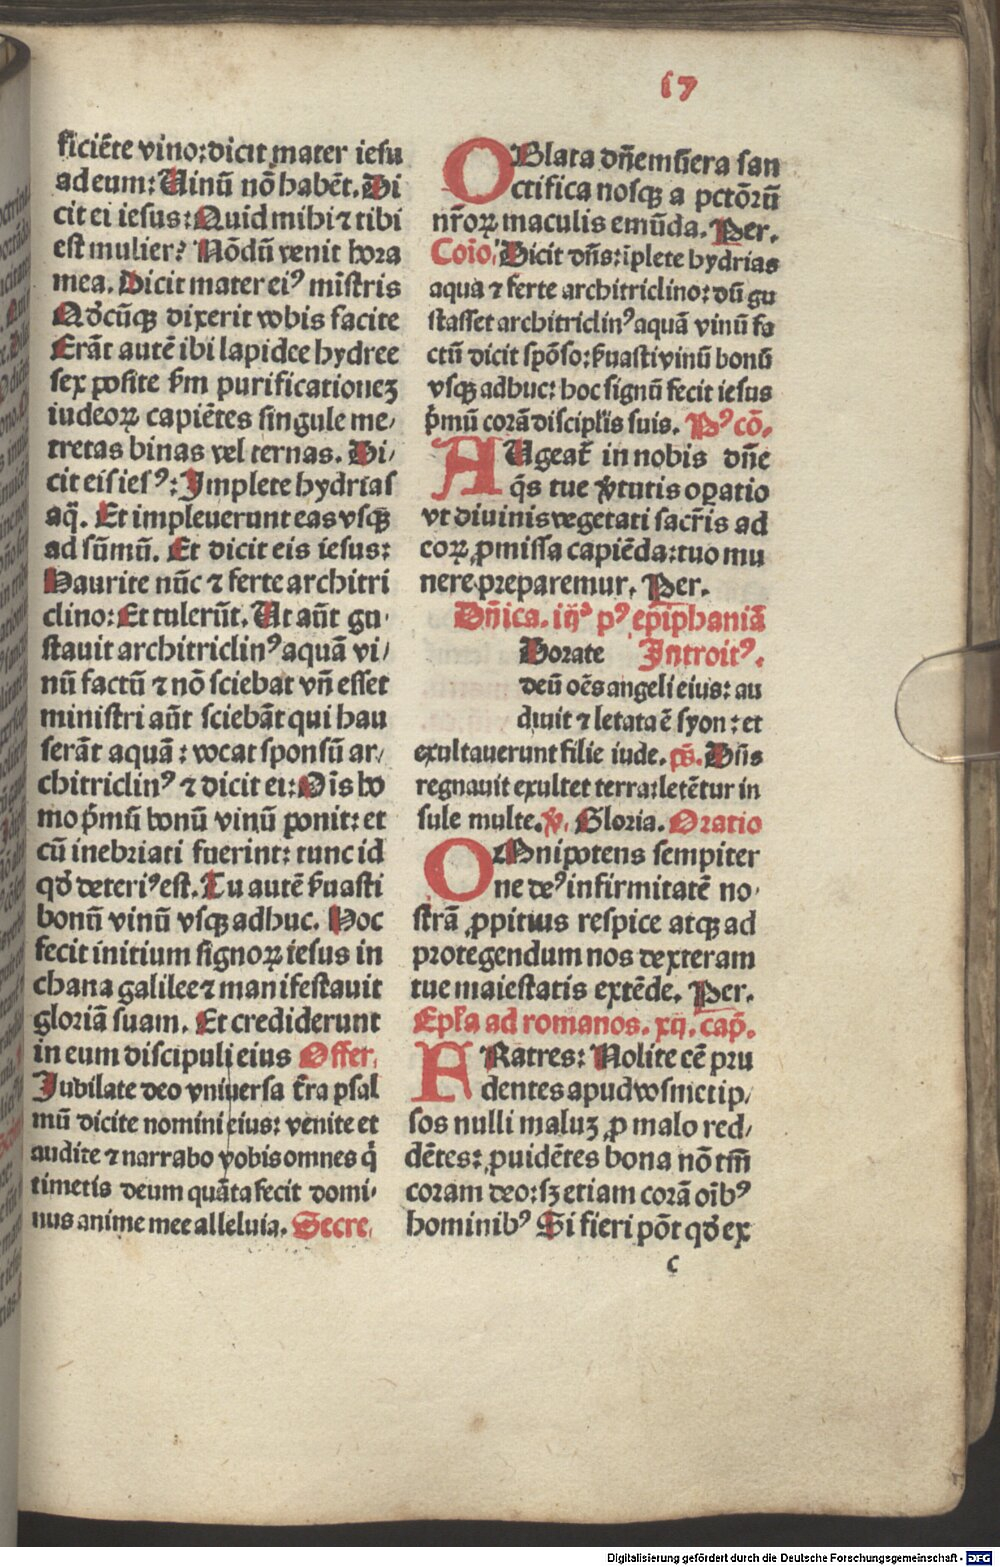 17
ficiẽte vino: dicit mater iesu
ad eum: Uinũ nõ habẽt. Di
cit ei iesus: Quid mihi ⁊ tibi
est mulier? Nõdũ venit hora
mea. Dicit mater eiꝰ miñstris
Qđcũqꝫ dixerit vobis facite
Erãt autẽ ibi lapidee hydree
sex posite ẜm purificationeꝫ
iudeoꝝ capiẽtes singule me/
tretas binas vel ternas. Di/
cit eis iesꝰ: Implete hydrias
aq̃. Et impleuerunt eas vsqꝫ
ad sũmũ. Et dicit eis iesus:
Haurite nũc ⁊ ferte architri
clino: Et tulerũt. Ut aũt gu
stauit architriclinꝰ aquã vi/
nũ factũ ⁊ nõ sciebat vñ esset
ministri aũt sciebãt qui hau
serãt aquã: vocat sponsũ ar/
chitriclinꝰ ⁊ dicit ei: Oĩs ho
mo p̃mũ bonũ vinũ ponit: et
cũ inebriati fuerint: tunc id
qđ deteriꝰ est. Tu autẽ ẜuasti
bonũ vinũ vsqꝫ adhuc. Hoc
fecit initium signoꝝ iesus in
chana galilee ⁊ manifestauit
gloriã suam. Et crediderunt
in eum discipuli eius Offer.
Iubilate deo vniuersa t̃ra psal
mũ dicite nomini eius: venite et
audite ⁊ narrabo vobis omnes q̃
timetis deum quãta fecit domi/
nus anime mee alleluia. Secre.
OBlata dñe mũera san
ctifica nosqꝫ a pctõrũ
nr̃oꝝ maculis emũda. Per.
Coĩo. Dicit dñs: iplete hydrias
aqua ⁊ ferte architriclino: dũ gu
stasset architriclinꝰ aquã vinũ fa
ctũ dicit spõso: ẜuasti vinũ bonũ
vsqꝫ adhuc: hoc signũ fecit iesus
p̃mũ corã discipl̃is suis. Pꝰ cõ.
AUgeat̃ in nobis dñe
q̃s tue v̾tutis oꝑatio
vt diuinis vegetati sacr̃is ad
eoꝝ ꝓmissa capiẽda: tuo mu
nere preparemur. Per.
Dñica. iij. pꝰ epiphaniã
Dorate Introitꝰ.
deũ oẽs angeli eius: au
diuit ⁊ letata ẽ syon: et
exultauerunt filie iude. p̃s. Dñs
regnauit exultet terra: letẽtur in
sule multe. ℣. Gloria. Oratio
OMnipotens sempiter
ne deꝰ infirmitatẽ no/
strã ꝓpitius respice atqꝫ ad
protegendum nos dexteram
tue maiestatis extẽde. Per.
Epl̃a ad romanos. xij. cap̃.
FRatres: Nolite eẽ pru
dentes apud vosmetip/
sos nulli maluꝫ ꝓ malo red/
dẽtes: ꝓuidẽtes bona nõ tm̃
coram deo: sꝫ etiam corã oĩbꝰ
hominibꝰ Si fieri põt qđ ex
c
Digitalisierung gefördert durch die Deutsche Forschungsgemeinschaft - DFG